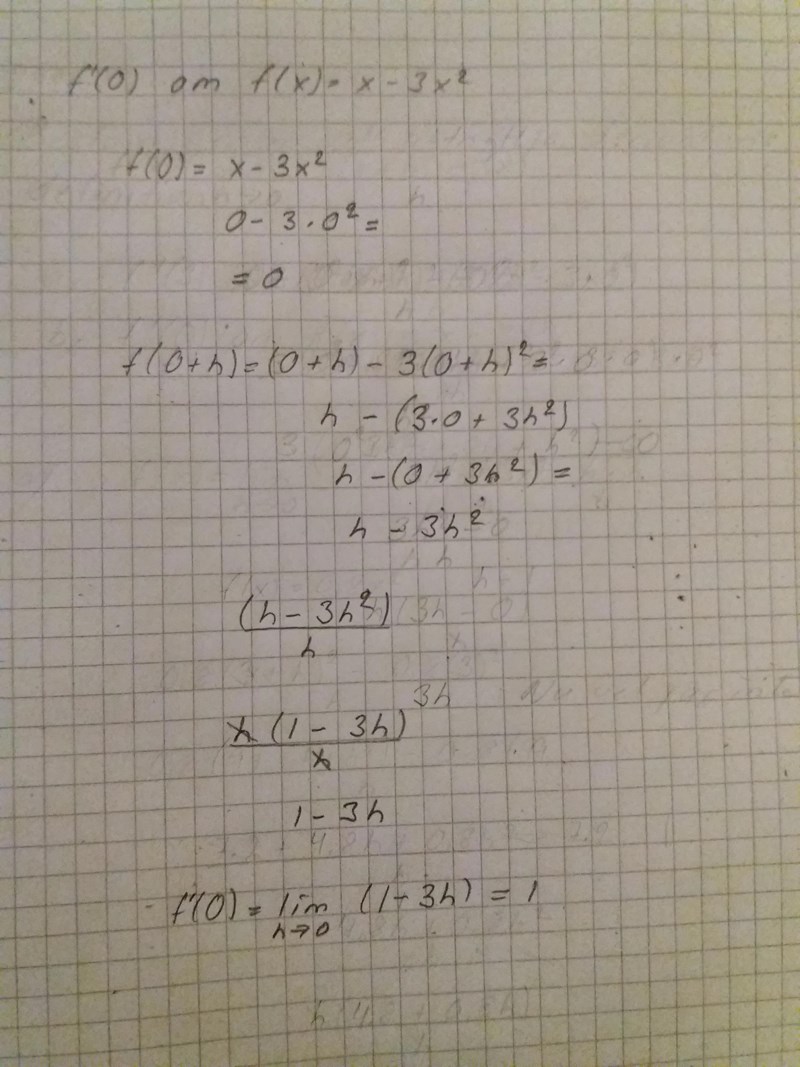 f'(0) om f(x) = x - 3x²
f(0) = x - 3x²
0 - 3·0² =
= 0
f(0+h) = (0+h) - 3(0+h)² =
h - (3·0 + 3h²)
h - (0 + 3h²) =
h - 3h²
(h - 3h²)
h
3h
h (1 - 3h)
h
1 - 3h
f'(0) = lim (1 - 3h) = 1
h→0